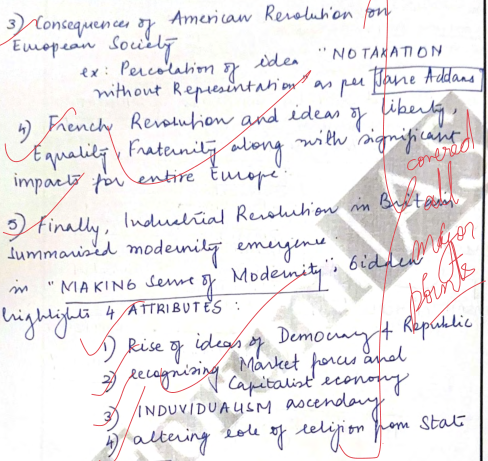 3) Consequences of American Revolution on
European Society
ex: Percolation of idea "NOTAXATION
without Representation" as per Jane Addams
4) French Revolution and ideas of liberty,
Equality, Fraternity along with significant
impacts for entire Europe.
covered
all
major
points
5) Finally, Industrial Revolution in Britain
summarised modernity emergence.
in "MAKING sense of Modernity", Giddens
highlights 4 ATTRIBUTES :
1) Rise of ideas of Democracy & Republic
2) recognising Market forces and
Capitalist economy
3) INDUVIDUALISM ascendary
4) altering role of religion from State